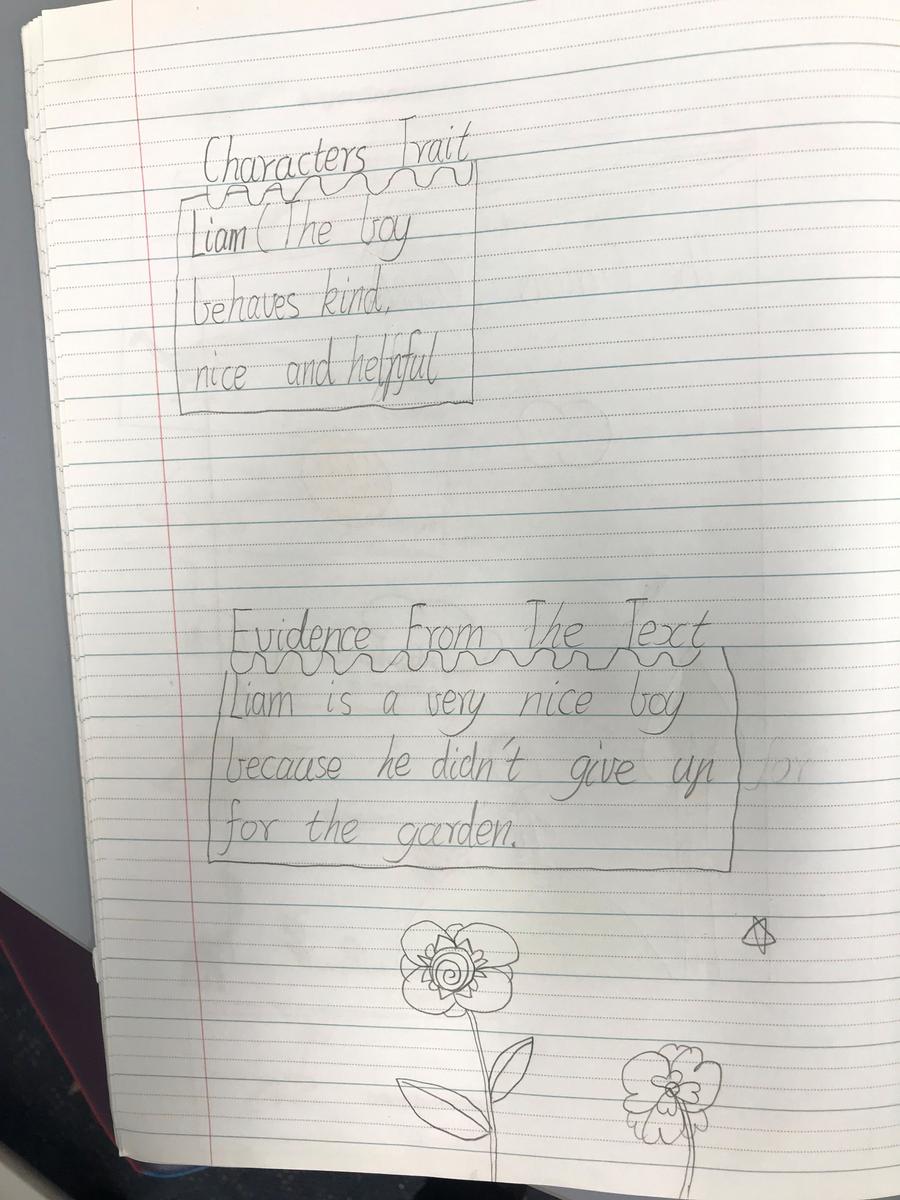 Characters Trait
Liam (The boy
behaves kind,
nice and helpful
Evidence From The Text
Liam is a very nice boy
because he didn't give up for
for the garden.